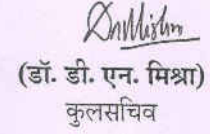 DnMishra
(डॉ. डी. एन. मिश्रा)
कुलसचिव